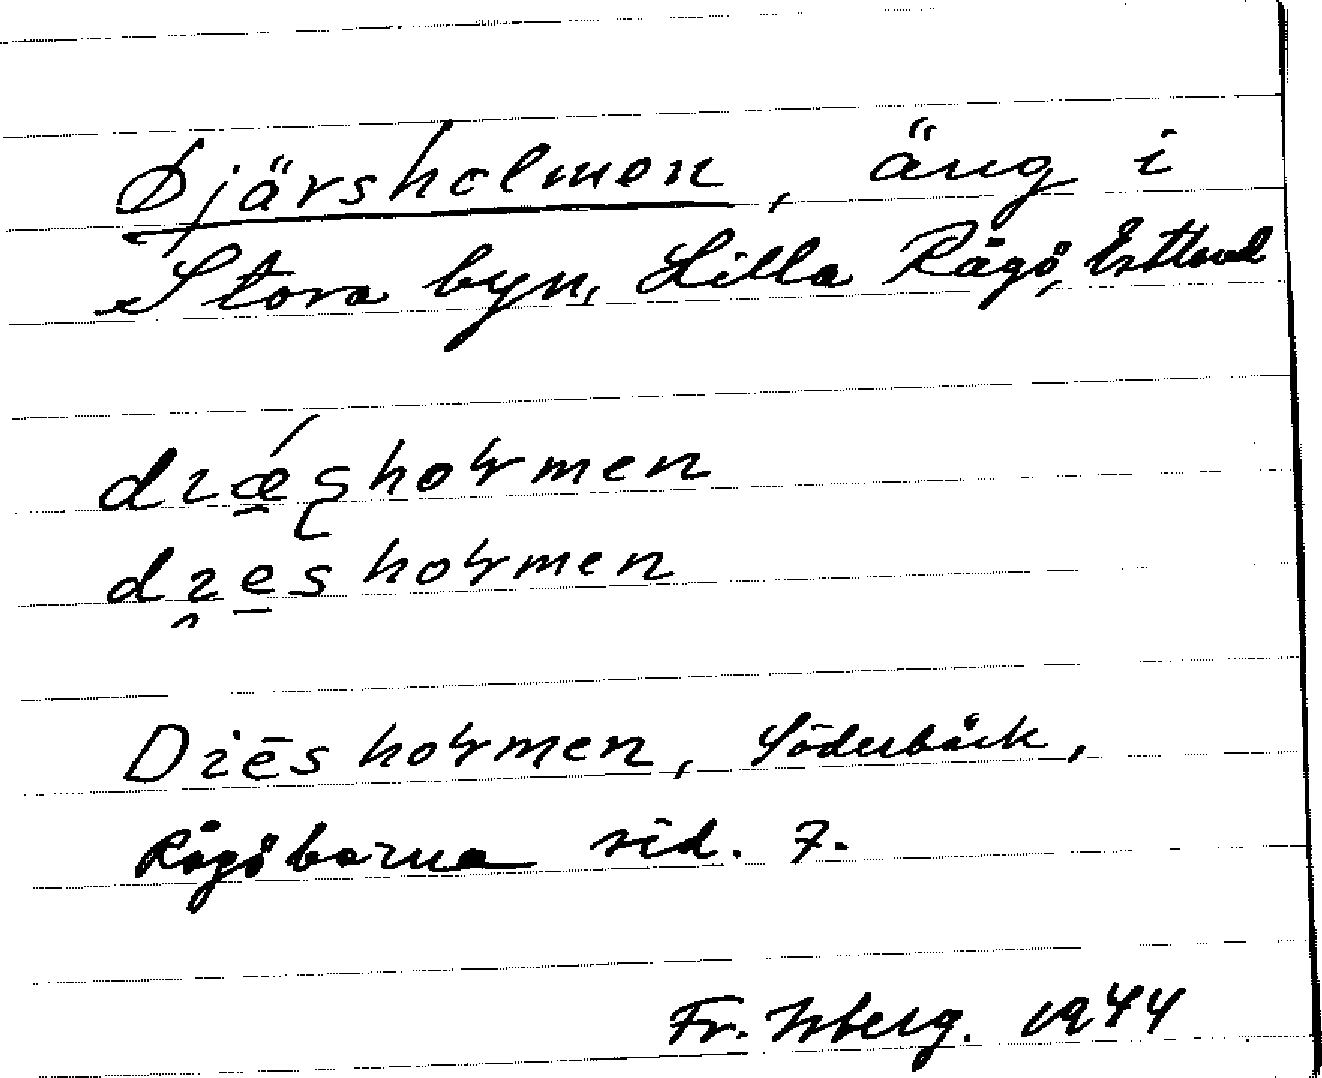 Djärsholmen, äng i
Stora byn, Lilla Rågö, Estland
dɿǽʂhoɽmen
dɿeshoɽmen
Diēshoɽmen, Söderbäck,
Rågöborna sid. 7.
Fr. Isberg. 1944